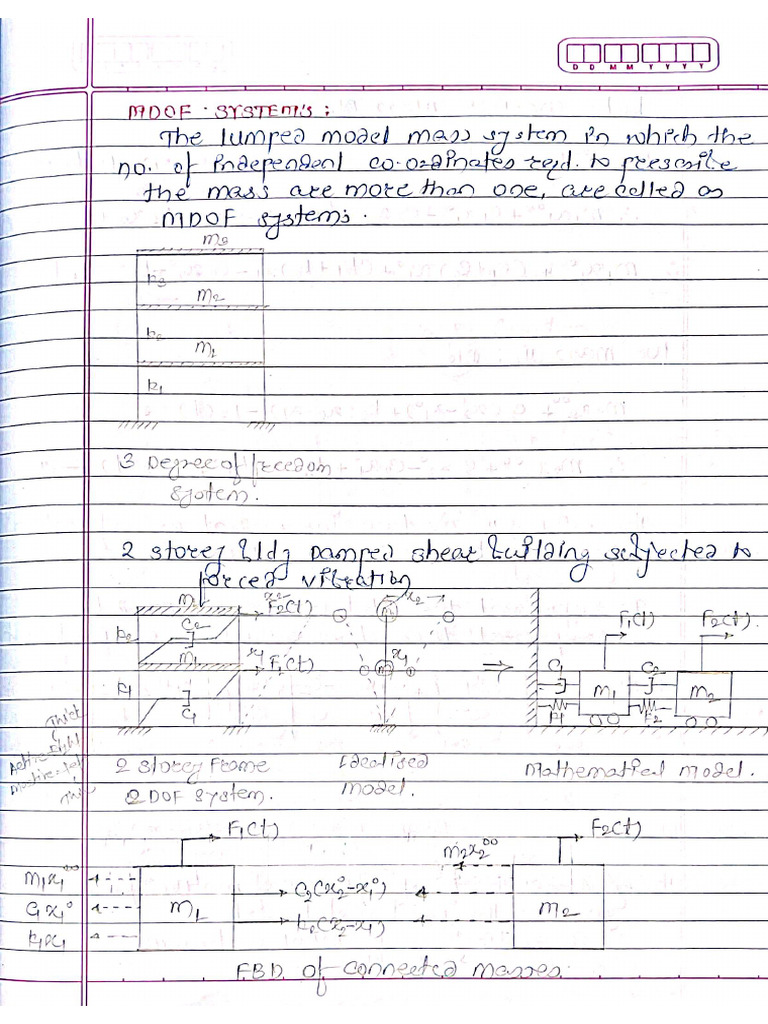 D D M M Y Y Y Y
MDOF SYSTEM'S :
The lumped model mass system in which the
no. of independent co-ordinates reqd. to prescribe
the mass are more than one, are called as
MDOF systems.
m3
k3
m2
k2
m1
k1
3 Degree of freedom
system.
2 storey bldg Damped shear building subjected to
forced vibration
m2 x2 F2(t) x2 m2 F1(t) F2(t)
k2 c2
m1 x1 F1(t) m1 x1
k1 c1
C1 m1 C2 m2
k1 k2
Thick
Active-right
Inactive-left
Thin
2 storey frame Idealised Mathematical model.
2 DOF system. model.
F1(t) F2(t)
m2ẍ2
m1ẍ1
C1ẋ1 m1 C2(ẋ2-ẋ1) m2
k1x1 k2(x2-x1)
FBD of connected masses.